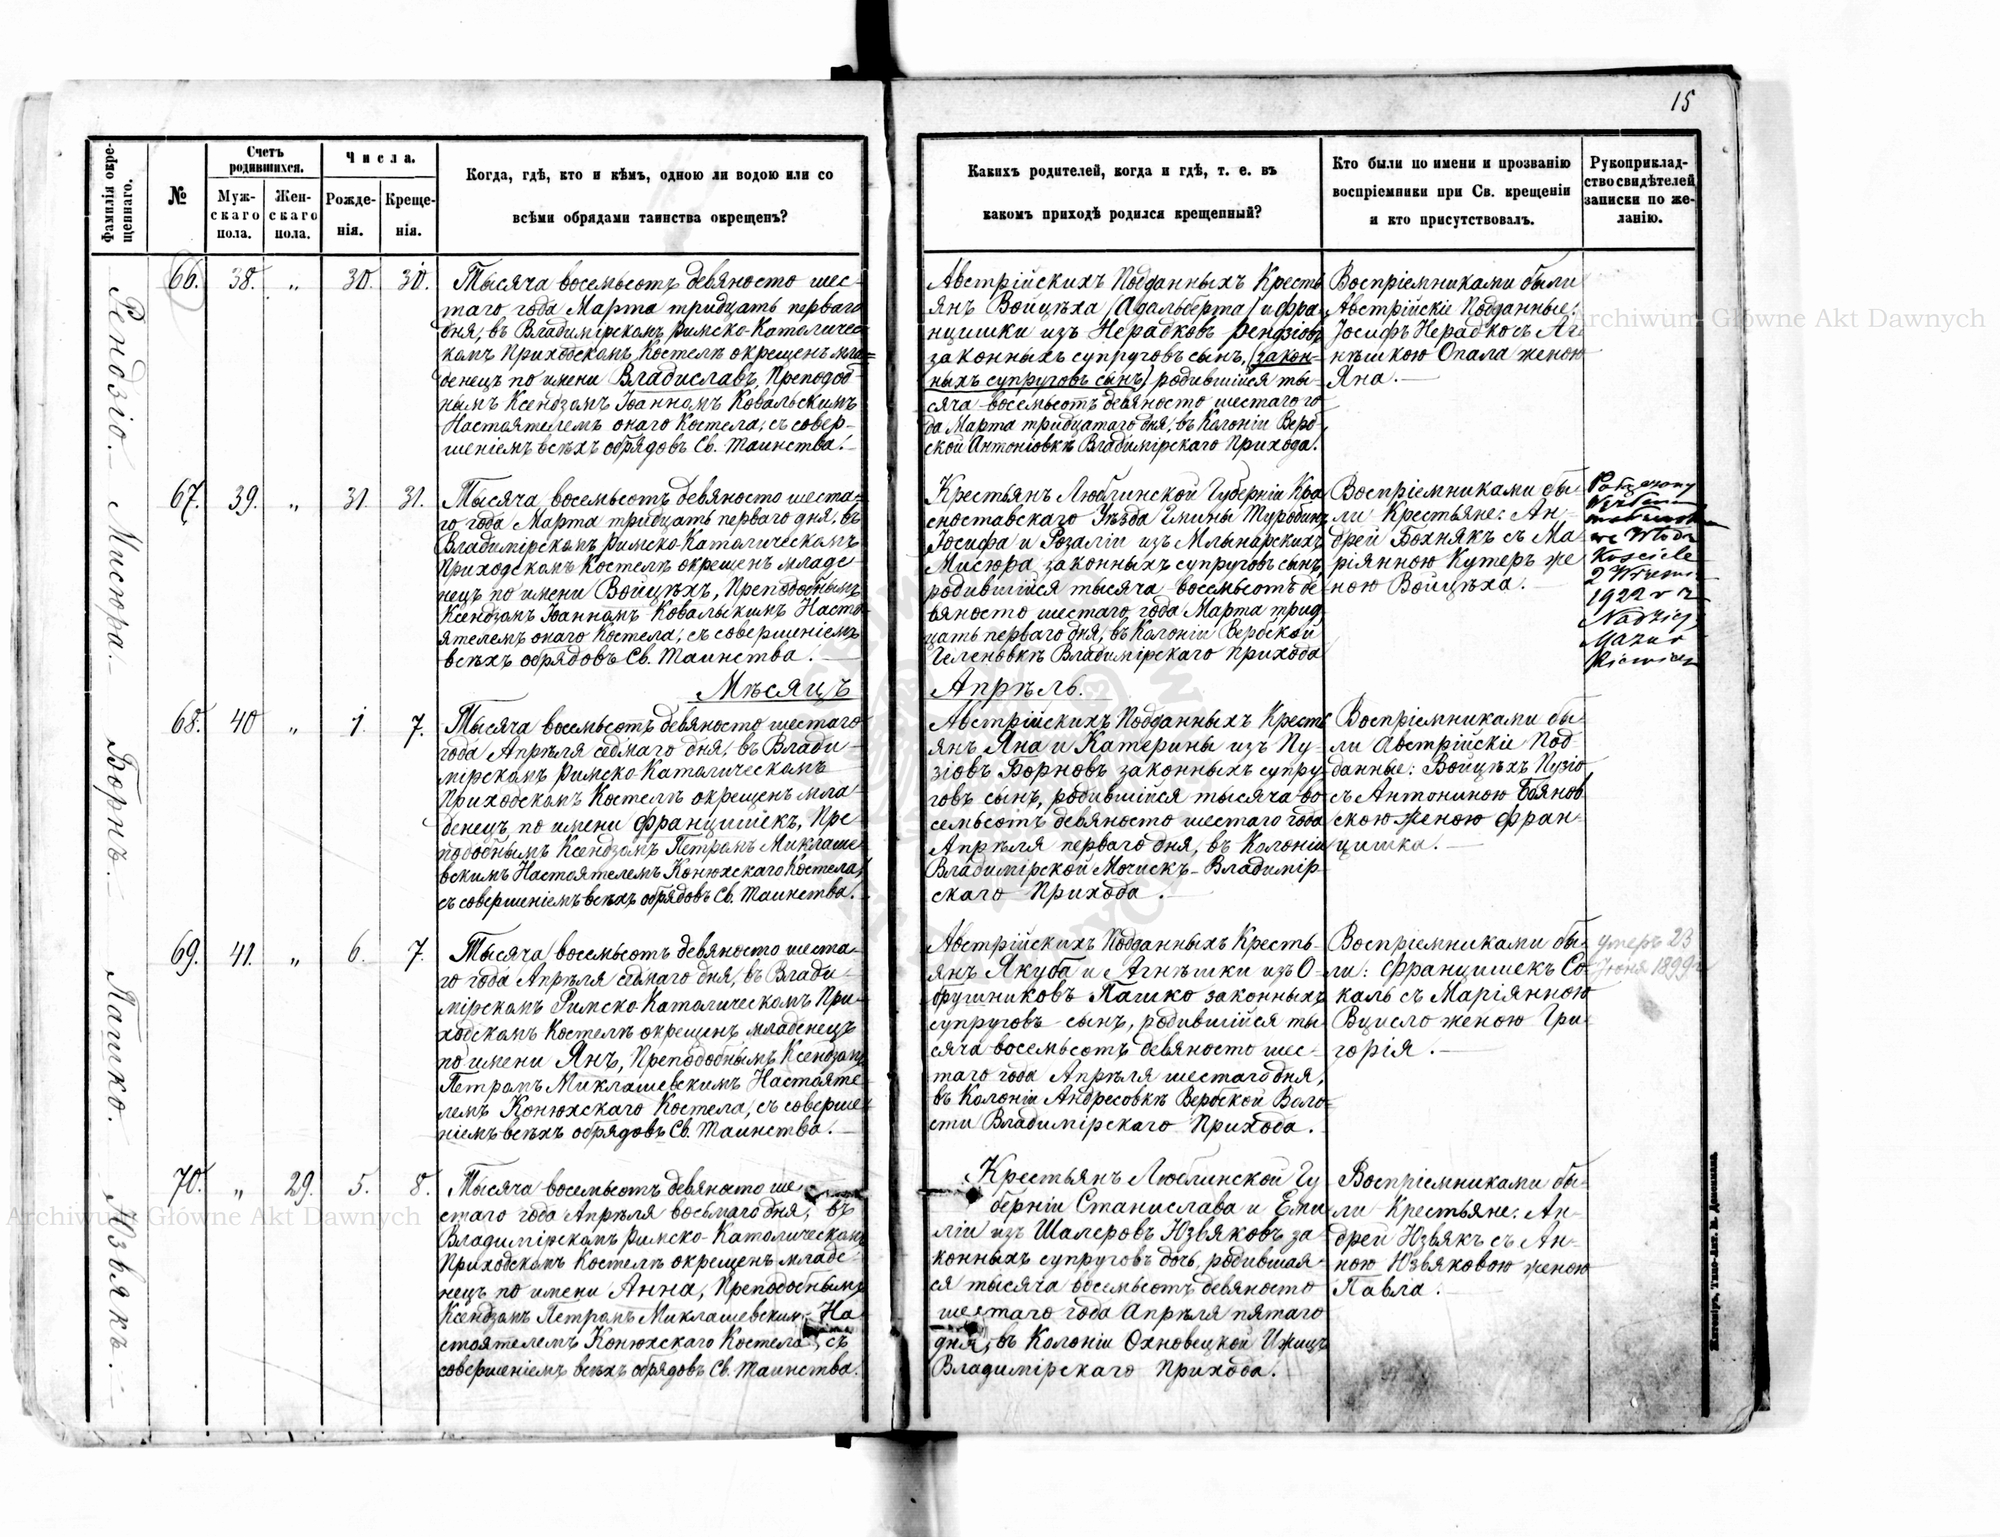 15
Фамилія окре-
щеннаго.
№
Счетъ
родившихся.
Муж-
скаго
пола.
Жен-
скаго
пола.
Числа.
Рожде-
нія.
Креще-
нія.
Когда, гдѣ, кто и кѣмъ, одною ли водою или со
всѣми обрядами таинства окрещенъ?
Какихъ родителей, когда и гдѣ, т. е. въ
какомъ приходѣ родился крещенный?
Кто были по имени и прозванію
воспріемники при Св. крещеніи
и кто присутствовалъ.
Рукоприклад-
ство свидѣтелей
записки по же-
ланію.
Рендзіо.
66. 38. „ 30. 30.
Тысяча восемьсотъ девяносто шес-
таго года Марта тридцать перваго
дня, въ Владимірскомъ Римско-Католичес-
комъ Приходскомъ Костелѣ окрещенъ мла-
денецъ по имени Владиславъ, Преподоб-
нымъ Ксендзомъ Іоанномъ Ковальскимъ
Настоятелемъ онаго Костела, съ совер-
шеніемъ всѣхъ обрядовъ Св. Таинства.
Австрійскихъ Подданныхъ Кресть
янъ Войцѣха (Адальберта) и Фра-
нцишки изъ Нерадковъ Рендзіовъ
законныхъ супруговъ сынъ, (закон-
ныхъ супруговъ сынъ) родившійся ты-
сяча восемьсотъ девяносто шестаго го
да Марта тридцатаго дня, въ Колоніи Верб-
ской Антоніовкѣ Владимірскаго Прихода.
Воспріемниками были
Австрійскіе Подданные:
Іосифъ Нерадко съ Аг
нѣшкою Опала женою
Яна.
Мисюра.
67. 39. „ 31. 31.
Тысяча восемьсотъ девяносто шеста-
го года Марта тридцать перваго дня, въ
Владимірскомъ Римско-Католическомъ
Приходскомъ Костелѣ окрещенъ младе-
нецъ по имени Войцѣхъ, Преподобнымъ
Ксендзомъ Іоанномъ Ковальскимъ Насто-
ятелемъ онаго Костела, съ совершеніемъ
всѣхъ обрядовъ Св. Таинства.
Крестьянъ Люблинской Губерніи Кра
сноставскаго Уѣзда Гмины Туробинъ
Іосифа и Розаліи изъ Млынарскихъ
Мисюра законныхъ супруговъ сынъ,
родившійся тысяча восемьсотъ де-
вяносто шестаго года Марта трид-
цать перваго дня, въ Колоніи Вербской
Геленовкѣ Владимірскаго Прихода
Воспріемниками бы-
ли Крестьяне: Ан-
дрей Бохнякъ съ Ма-
ріянною Кутеръ же
ною Войцѣха.
we Włodz
Kościele
2 Wrześn
1922 r
Mazur
kiewicz
Мѣсяцъ Апрѣль.
Борнъ.
68. 40 „ 1. 7.
Тысяча восемьсотъ девяносто шестаго
года Апрѣля седмаго дня, въ Влади-
мірскомъ Римско-Католическомъ
Приходскомъ Костелѣ окрещенъ мла
денецъ по имени Францишекъ, Пре-
подобнымъ Ксендзомъ Петромъ Миклаше-
вскимъ Настоятелемъ Конюхскаго Костела,
съ совершеніемъ всѣхъ обрядовъ Св. Таинства.
Австрійскихъ Подданныхъ Кресть
янъ Яна и Катерины изъ Пу-
зіовъ Борновъ законныхъ супру-
говъ сынъ, родившійся тысяча во-
семьсотъ девяносто шестаго года
Апрѣля перваго дня, въ Колоніи
Владимірской Мочискъ Владимір
скаго Прихода.
Воспріемниками бы-
ли Австрійскіе Под-
данные: Войцѣхъ Пузіо
съ Антониною Боянов
скою женою Фран-
цишка.
Пашко.
69. 41. „ 6. 7.
Тысяча восемьсотъ девяносто шеста-
го года Апрѣля седмаго дня, въ Влади-
мірскомъ Римско-Католическомъ При-
ходскомъ Костелѣ окрещенъ младенецъ
по имени Янъ, Преподобнымъ Ксендзомъ
Петромъ Миклашевскимъ Настояте-
лемъ Конюхскаго Костела, съ соверше-
ніемъ всѣхъ обрядовъ Св. Таинства.
Австрійскихъ Подданныхъ Кресть-
янъ Якуба и Агнѣшки изъ О-
фрушниковъ Пашко законныхъ
супруговъ сынъ, родившійся ты
сяча восемьсотъ девяносто шес-
таго года Апрѣля шестаго дня,
въ Колоніи Андресовкѣ Вербской Воло-
сти Владимірскаго Прихода.
Воспріемниками бы-
ли: Францишекъ Со-
каль съ Маріянною
Вцисло женою Гри-
горія.
умеръ 23
Іюня 1899 г
Юзвякъ.
70. „ 29. 5. 8.
Тысяча восемьсотъ девяносто ше
стаго года Апрѣля восьмаго дня, въ
Владимірскомъ Римско-Католическомъ
Приходскомъ Костелѣ окрещенъ младе-
нецъ по имени Анна, Преподобнымъ
Ксендзомъ Петромъ Миклашевскимъ На
стоятелемъ Конюхскаго Костела, съ
совершеніемъ всѣхъ обрядовъ Св. Таинства.
Крестьянъ Люблинской Гу
берніи Станислава и Еми
ліи изъ Шалеровъ Юзвяковъ за-
конныхъ супруговъ дочь, родившая-
ся тысяча восемьсотъ девяносто
шестаго года Апрѣля пятаго
дня, въ Колоніи Охновецкой Ижицъ
Владимірскаго Прихода.
Воспріемниками бы-
ли Крестьяне: Ан-
дрей Юзвякъ съ Ан-
ною Юзвяковою женою
Павла.
Archiwum Główne Akt Dawnych
Archiwum Główne Akt Dawnych